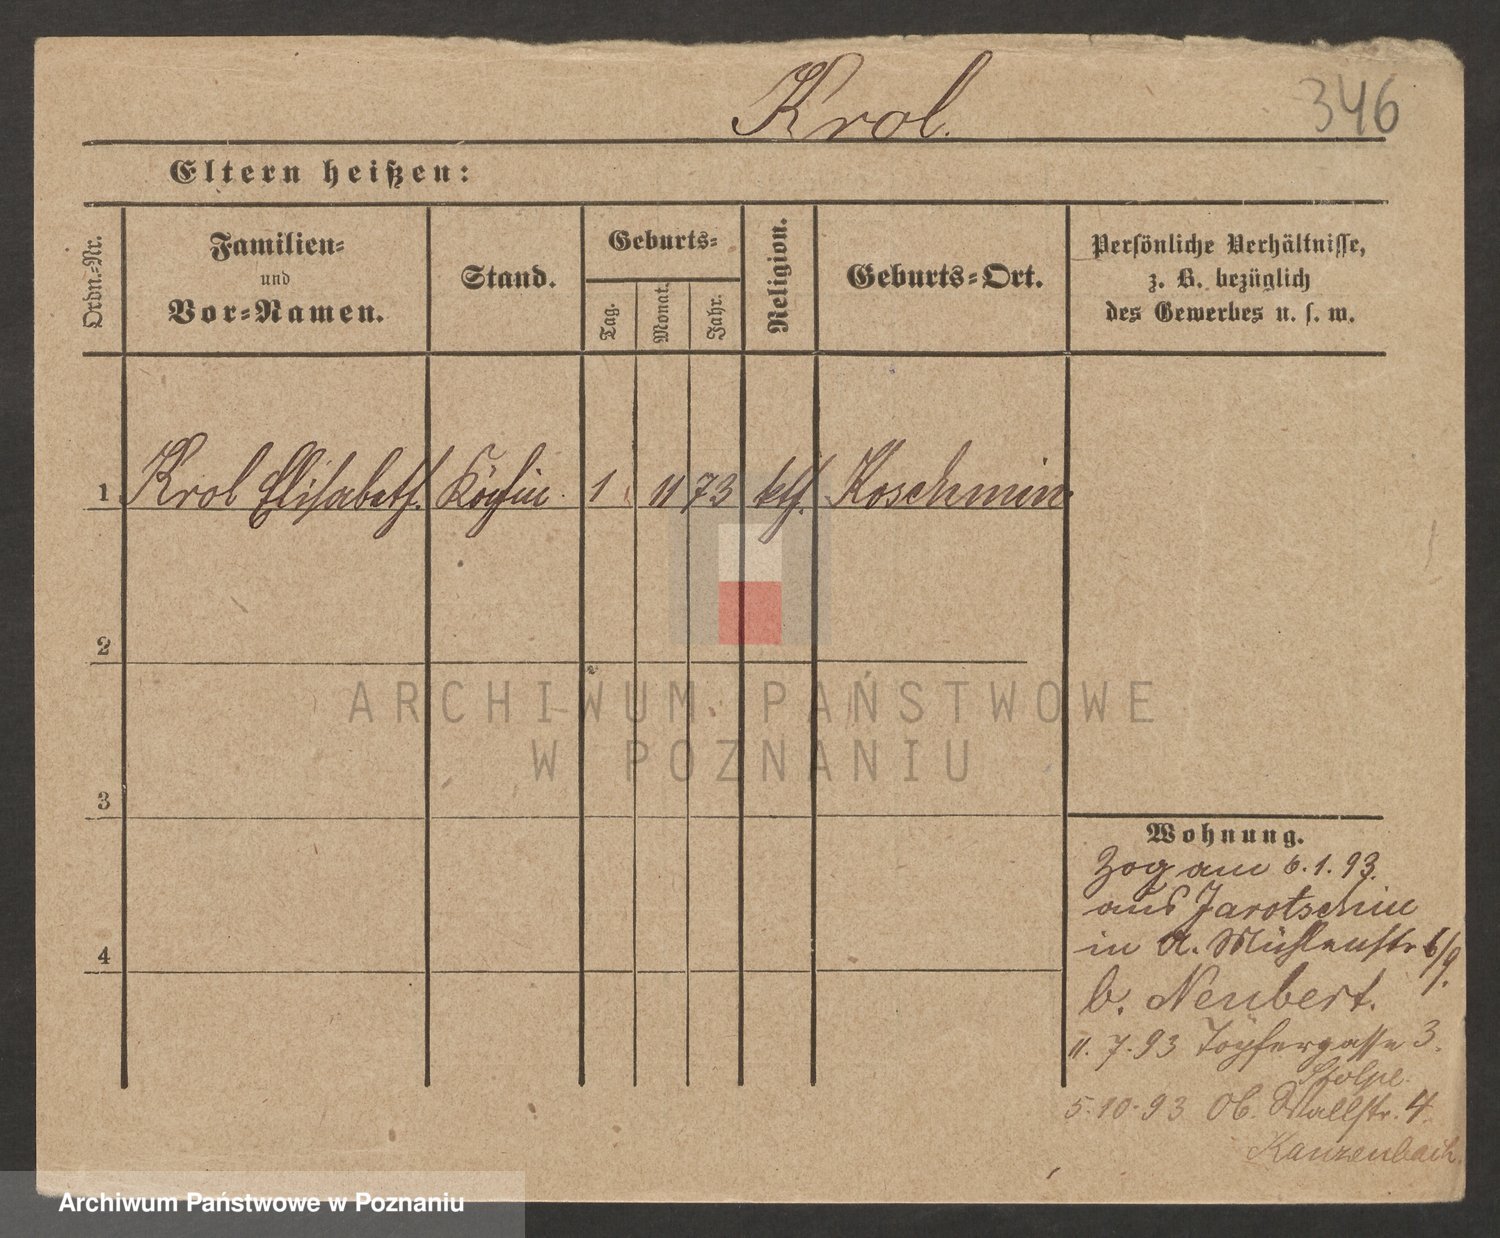 Krol.
346
Eltern heißen:
Ordn.-Nr.
Familien-
und
Vor-Namen.
Stand.
Geburts-
Tag.
Monat.
Jahr.
Religion.
Geburts-Ort.
Persönliche Verhältnisse,
z. B. bezüglich
des Gewerbes u. s. w.
1 Krol Elisabeth. Köchin. 1 11 73 kth. Koschmin.
2
3
4
Wohnung.
Zog am 6.1.93.
aus Jarotschin
in A. Mühlenstr 6/9.
b. Neubert.
11.7.93 Töpfergasse 3.
5.10.93 Ob. Wallstr. 4.
Kanzenbach.
ARCHIWUM PAŃSTWOWE
W POZNANIU
Archiwum Państwowe w Poznaniu